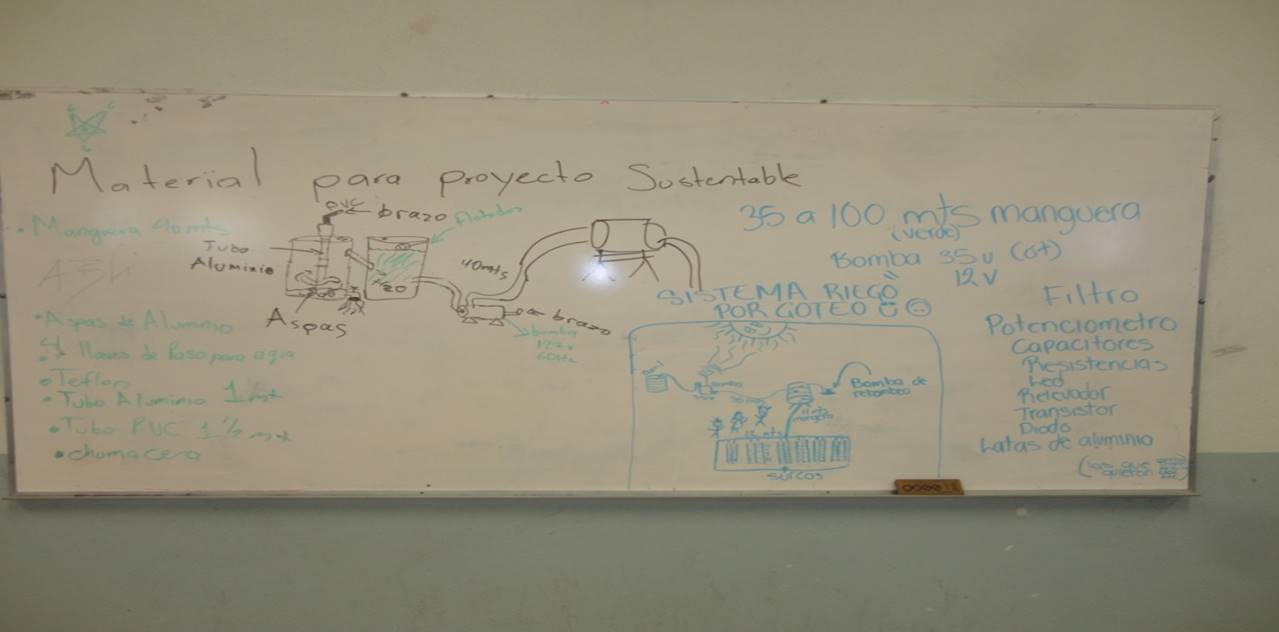 Material para proyecto Sustentable
• Manguera 40 mts
PVC
brazo
Flotador
Tubo
Aluminio
H20
Aspas
40mts
brazo
bomba
127v
60Hz
• Aspas de Aluminio
llaves de Paso para agua
• Teflon
• Tubo Aluminio 1
• Tubo PVC 1 1/2
• chumacera
35 a 100 mts manguera
(verde)
Bomba 35v
12v
SISTEMA RIEGO
POR GOTEO
bomba
Bomba de
rebombeo
manguera
mts
surcos
Filtro
Potenciometro
Capacitores
Resistencias
Led
Relevador
Transistor
Diodo
Latas de aluminio
(las que
quieran